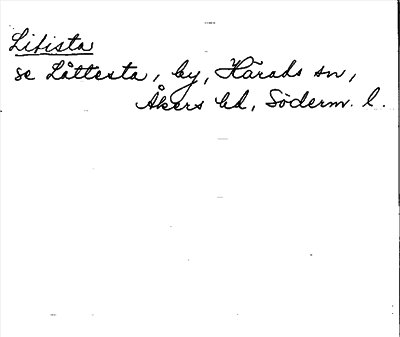 Litista
se Låttesta, by, Härads sn,
Åkers hd, Söderm. l.